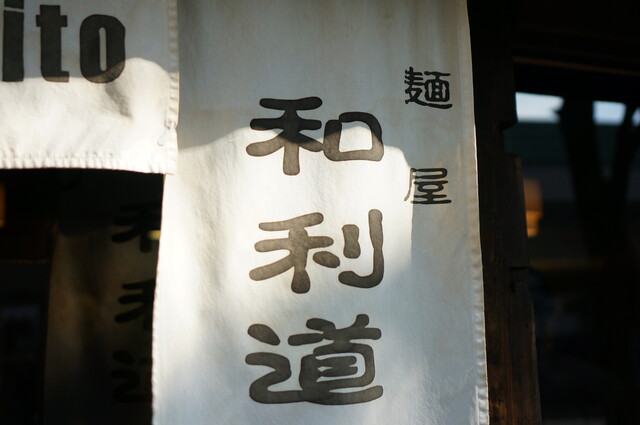 ito
麺屋
和利道